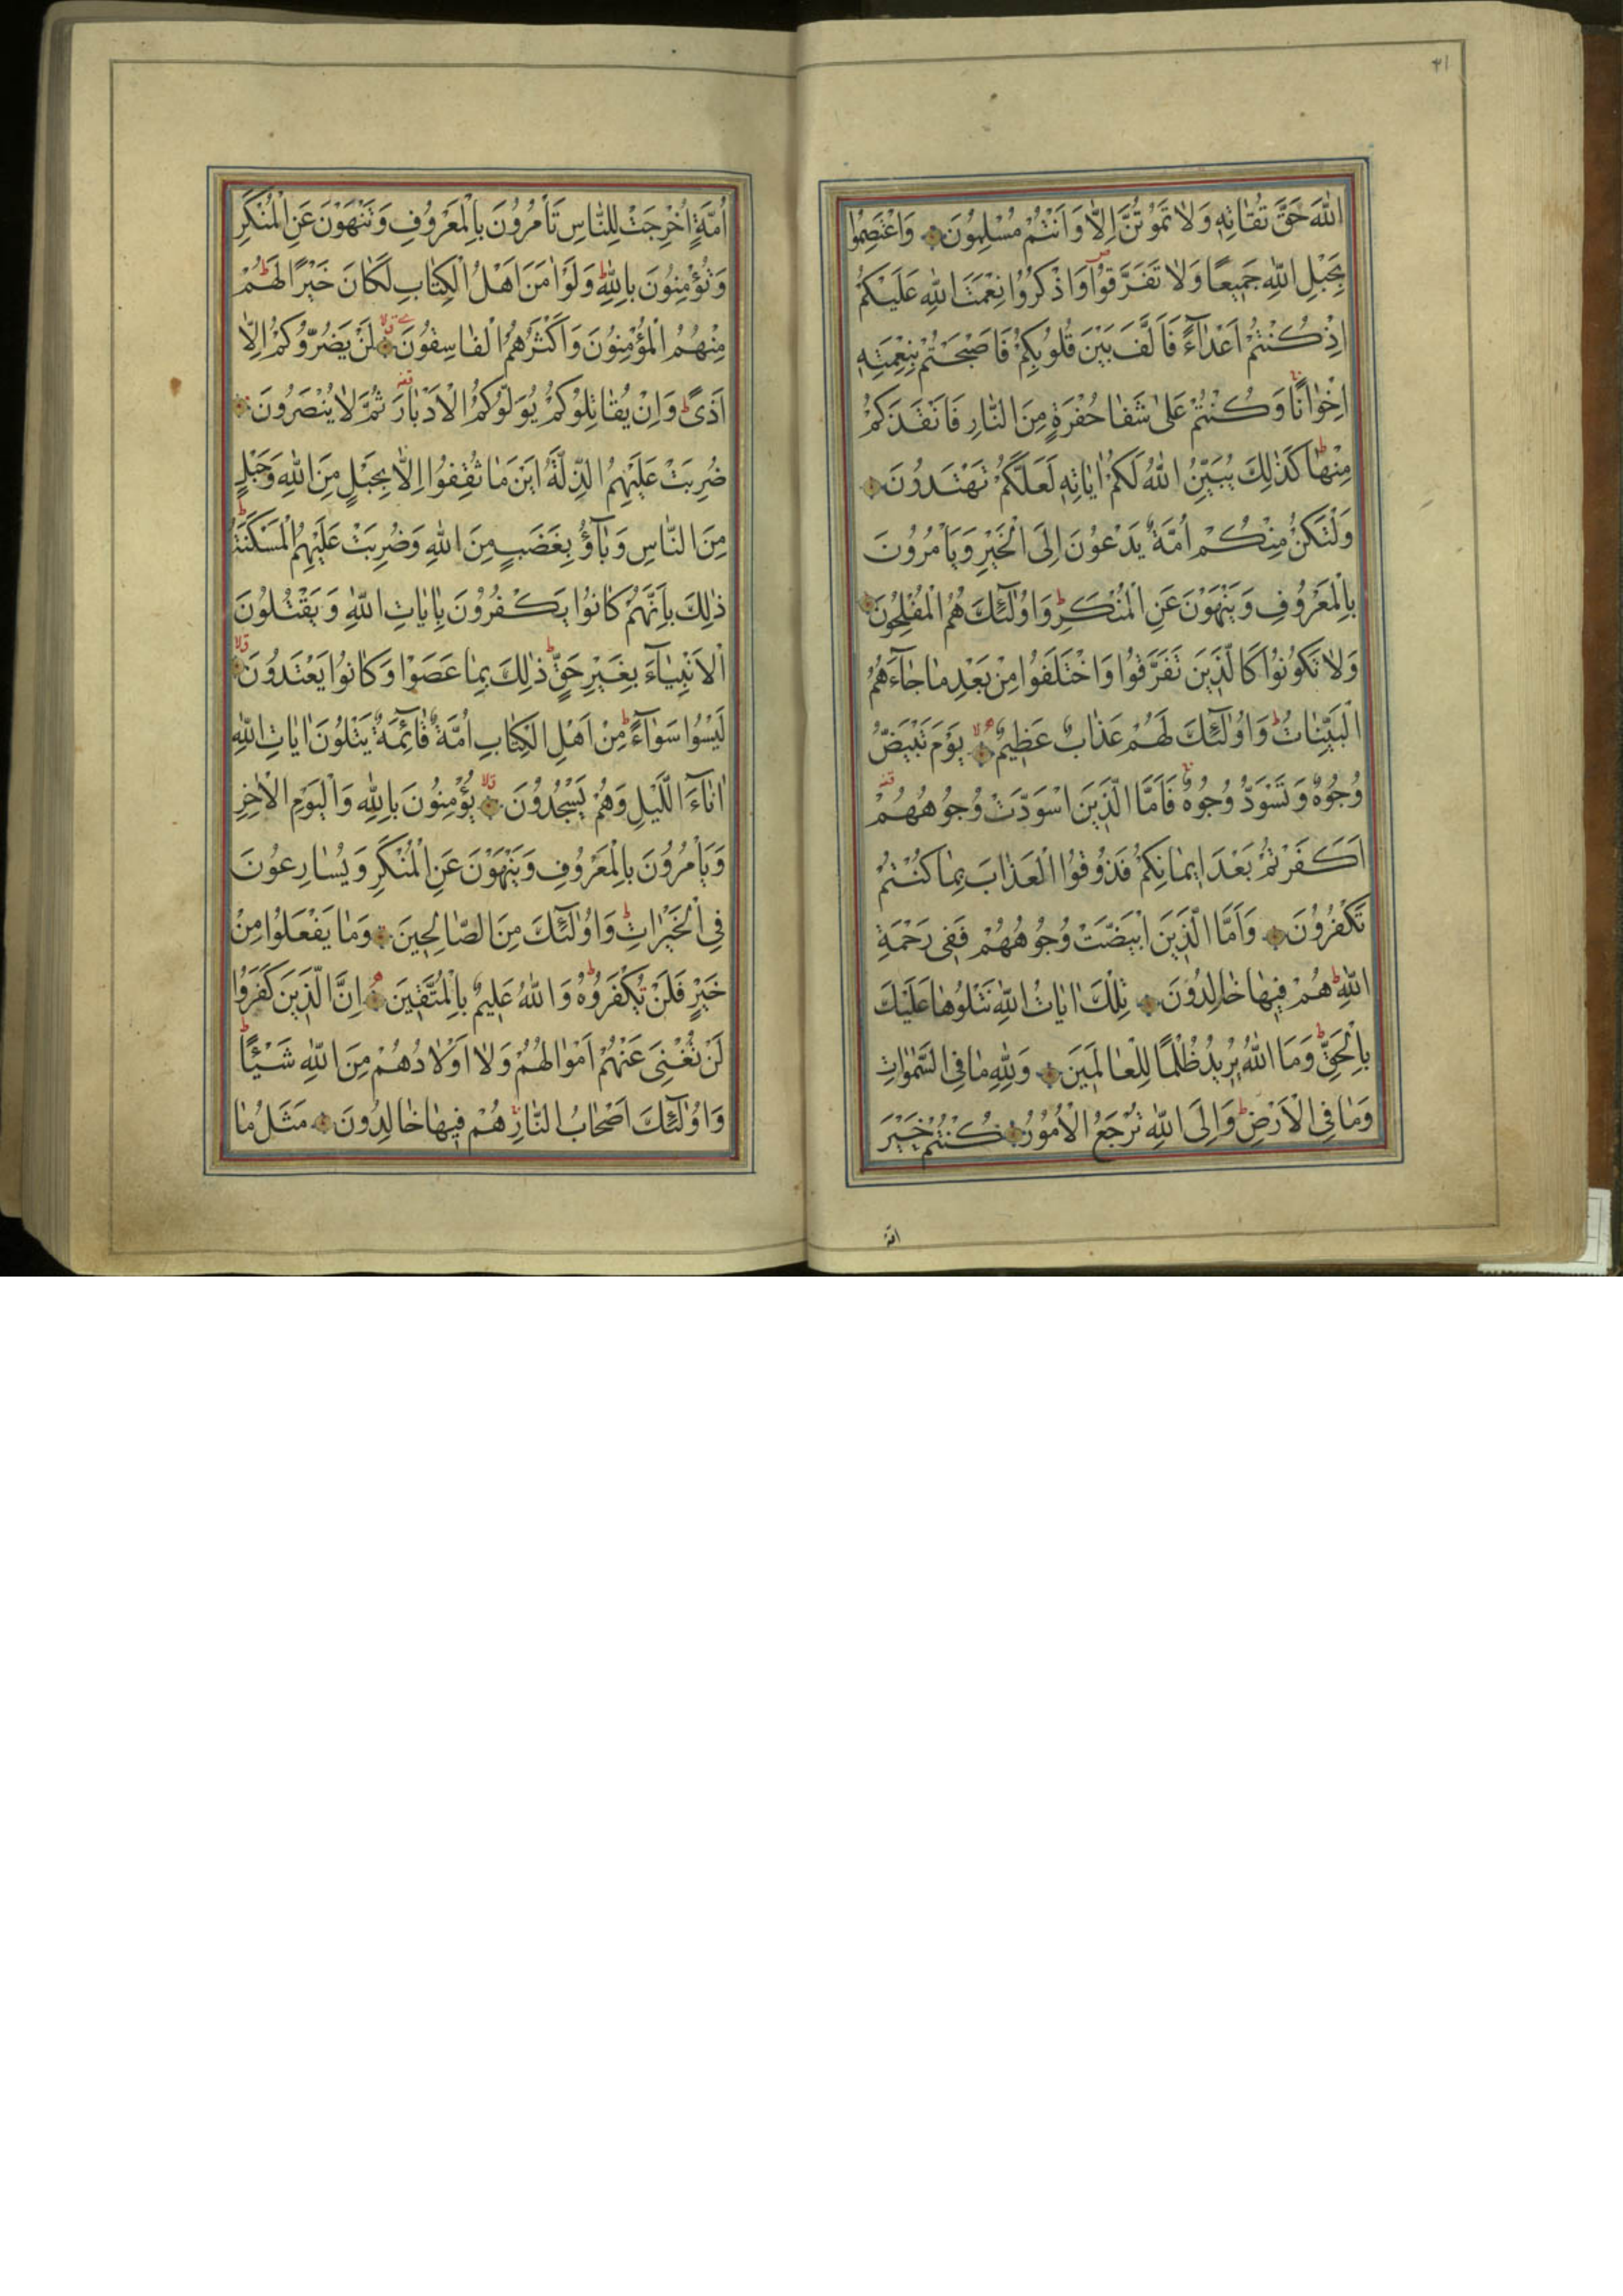 ٤١
اللّٰهَ حَقَّ تُقَاتِهٖ وَلَا تَمُوتُنَّ اِلَّا وَاَنْتُمْ مُسْلِمُونَ وَاعْتَصِمُوا
بِحَبْلِ اللّٰهِ جَمِيعًا وَلَا تَفَرَّقُوا وَاذْكُرُوا نِعْمَتَ اللّٰهِ عَلَيْكُمْ
اِذْ كُنْتُمْ اَعْدَآءً فَاَلَّفَ بَيْنَ قُلُوبِكُمْ فَاَصْبَحْتُمْ بِنِعْمَتِهٖ
اِخْوَانًا وَكُنْتُمْ عَلٰى شَفَا حُفْرَةٍ مِنَ النَّارِ فَاَنْقَذَكُمْ
مِنْهَا كَذٰلِكَ يُبَيِّنُ اللّٰهُ لَكُمْ اٰيَاتِهٖ لَعَلَّكُمْ تَهْتَدُونَ
وَلْتَكُنْ مِنْكُمْ اُمَّةٌ يَدْعُونَ اِلَى الْخَيْرِ وَيَاْمُرُونَ
بِالْمَعْرُوفِ وَيَنْهَوْنَ عَنِ الْمُنْكَرِ وَاُولٰٓئِكَ هُمُ الْمُفْلِحُونَ
وَلَا تَكُونُوا كَالَّذِينَ تَفَرَّقُوا وَاخْتَلَفُوا مِنْ بَعْدِ مَا جَآءَهُمُ
الْبَيِّنَاتُ وَاُولٰٓئِكَ لَهُمْ عَذَابٌ عَظِيمٌ يَوْمَ تَبْيَضُّ
وُجُوهٌ وَتَسْوَدُّ وُجُوهٌ فَاَمَّا الَّذِينَ اسْوَدَّتْ وُجُوهُهُمْ
اَكَفَرْتُمْ بَعْدَ اِيمَانِكُمْ فَذُوقُوا الْعَذَابَ بِمَا كُنْتُمْ
تَكْفُرُونَ وَاَمَّا الَّذِينَ ابْيَضَّتْ وُجُوهُهُمْ فَفِى رَحْمَةِ
اللّٰهِ هُمْ فِيهَا خَالِدُونَ تِلْكَ اٰيَاتُ اللّٰهِ نَتْلُوهَا عَلَيْكَ
بِالْحَقِّ وَمَا اللّٰهُ يُرِيدُ ظُلْمًا لِلْعَالَمِينَ وَلِلّٰهِ مَا فِى السَّمٰوَاتِ
وَمَا فِى الْاَرْضِ وَاِلَى اللّٰهِ تُرْجَعُ الْاُمُورُ كُنْتُمْ خَيْرَ
اُمَّةٍ اُخْرِجَتْ لِلنَّاسِ تَاْمُرُونَ بِالْمَعْرُوفِ وَتَنْهَوْنَ عَنِ الْمُنْكَرِ
وَتُؤْمِنُونَ بِاللّٰهِ وَلَوْ اٰمَنَ اَهْلُ الْكِتَابِ لَكَانَ خَيْرًا لَهُمْ
مِنْهُمُ الْمُؤْمِنُونَ وَاَكْثَرُهُمُ الْفَاسِقُونَ لَنْ يَضُرُّوكُمْ اِلَّا
اَذًى وَاِنْ يُقَاتِلُوكُمْ يُوَلُّوكُمُ الْاَدْبَارَ ثُمَّ لَا يُنْصَرُونَ
ضُرِبَتْ عَلَيْهِمُ الذِّلَّةُ اَيْنَ مَا ثُقِفُوا اِلَّا بِحَبْلٍ مِنَ اللّٰهِ وَحَبْلٍ
مِنَ النَّاسِ وَبَآؤُ بِغَضَبٍ مِنَ اللّٰهِ وَضُرِبَتْ عَلَيْهِمُ الْمَسْكَنَةُ
ذٰلِكَ بِاَنَّهُمْ كَانُوا يَكْفُرُونَ بِاٰيَاتِ اللّٰهِ وَيَقْتُلُونَ
الْاَنْبِيَآءَ بِغَيْرِ حَقٍّ ذٰلِكَ بِمَا عَصَوْا وَكَانُوا يَعْتَدُونَ
لَيْسُوا سَوَآءً مِنْ اَهْلِ الْكِتَابِ اُمَّةٌ قَآئِمَةٌ يَتْلُونَ اٰيَاتِ اللّٰهِ
اٰنَآءَ الَّيْلِ وَهُمْ يَسْجُدُونَ يُؤْمِنُونَ بِاللّٰهِ وَالْيَوْمِ الْاٰخِرِ
وَيَاْمُرُونَ بِالْمَعْرُوفِ وَيَنْهَوْنَ عَنِ الْمُنْكَرِ وَيُسَارِعُونَ
فِى الْخَيْرَاتِ وَاُولٰٓئِكَ مِنَ الصَّالِحِينَ وَمَا يَفْعَلُوا مِنْ
خَيْرٍ فَلَنْ يُكْفَرُوهُ وَاللّٰهُ عَلِيمٌ بِالْمُتَّقِينَ اِنَّ الَّذِينَ كَفَرُوا
لَنْ تُغْنِىَ عَنْهُمْ اَمْوَالُهُمْ وَلَا اَوْلَادُهُمْ مِنَ اللّٰهِ شَيْئًا
وَاُولٰٓئِكَ اَصْحَابُ النَّارِ هُمْ فِيهَا خَالِدُونَ مَثَلُ مَا